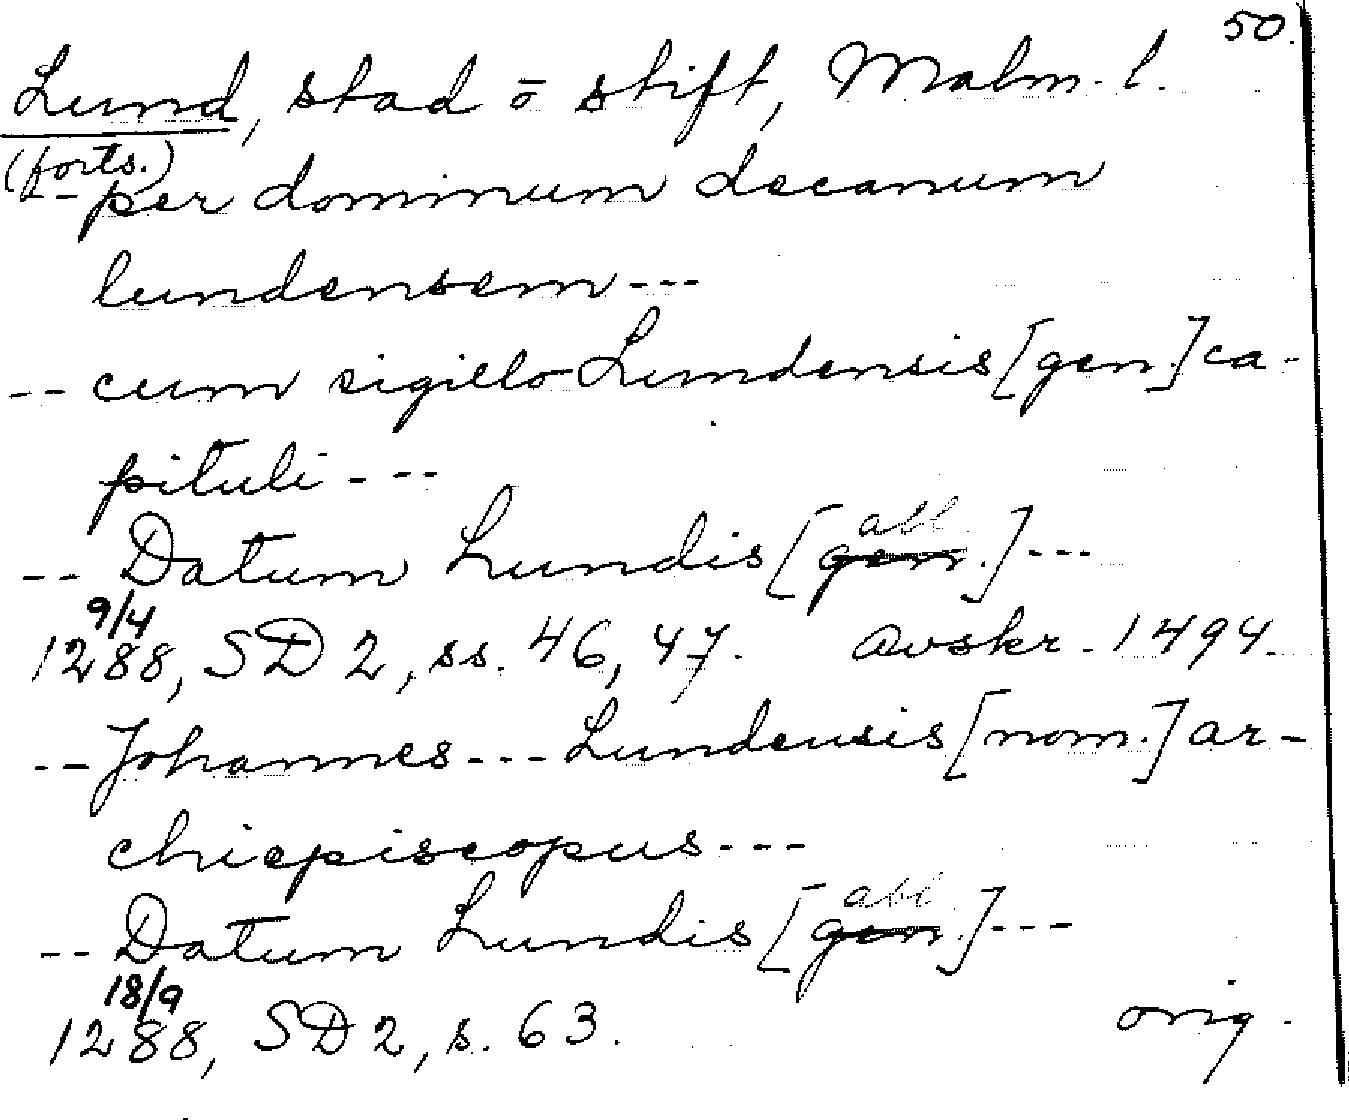 50.
Lund, stad o stift, Malm. l.
(forts.)
-- per dominum decanum
lundensem ---
-- cum sigillo Lundensis [gen.] ca-
pituli ---
abl.
-- Datum Lundis [gen.] ---
9/4
1288, SD 2, ss. 46, 47. avskr. 1494.
-- Johannes --- Lundensis [nom.] ar-
chiepiscopus ---
abl.
-- Datum Lundis [gen.] ---
18/9
1288, SD 2, s. 63. orig.